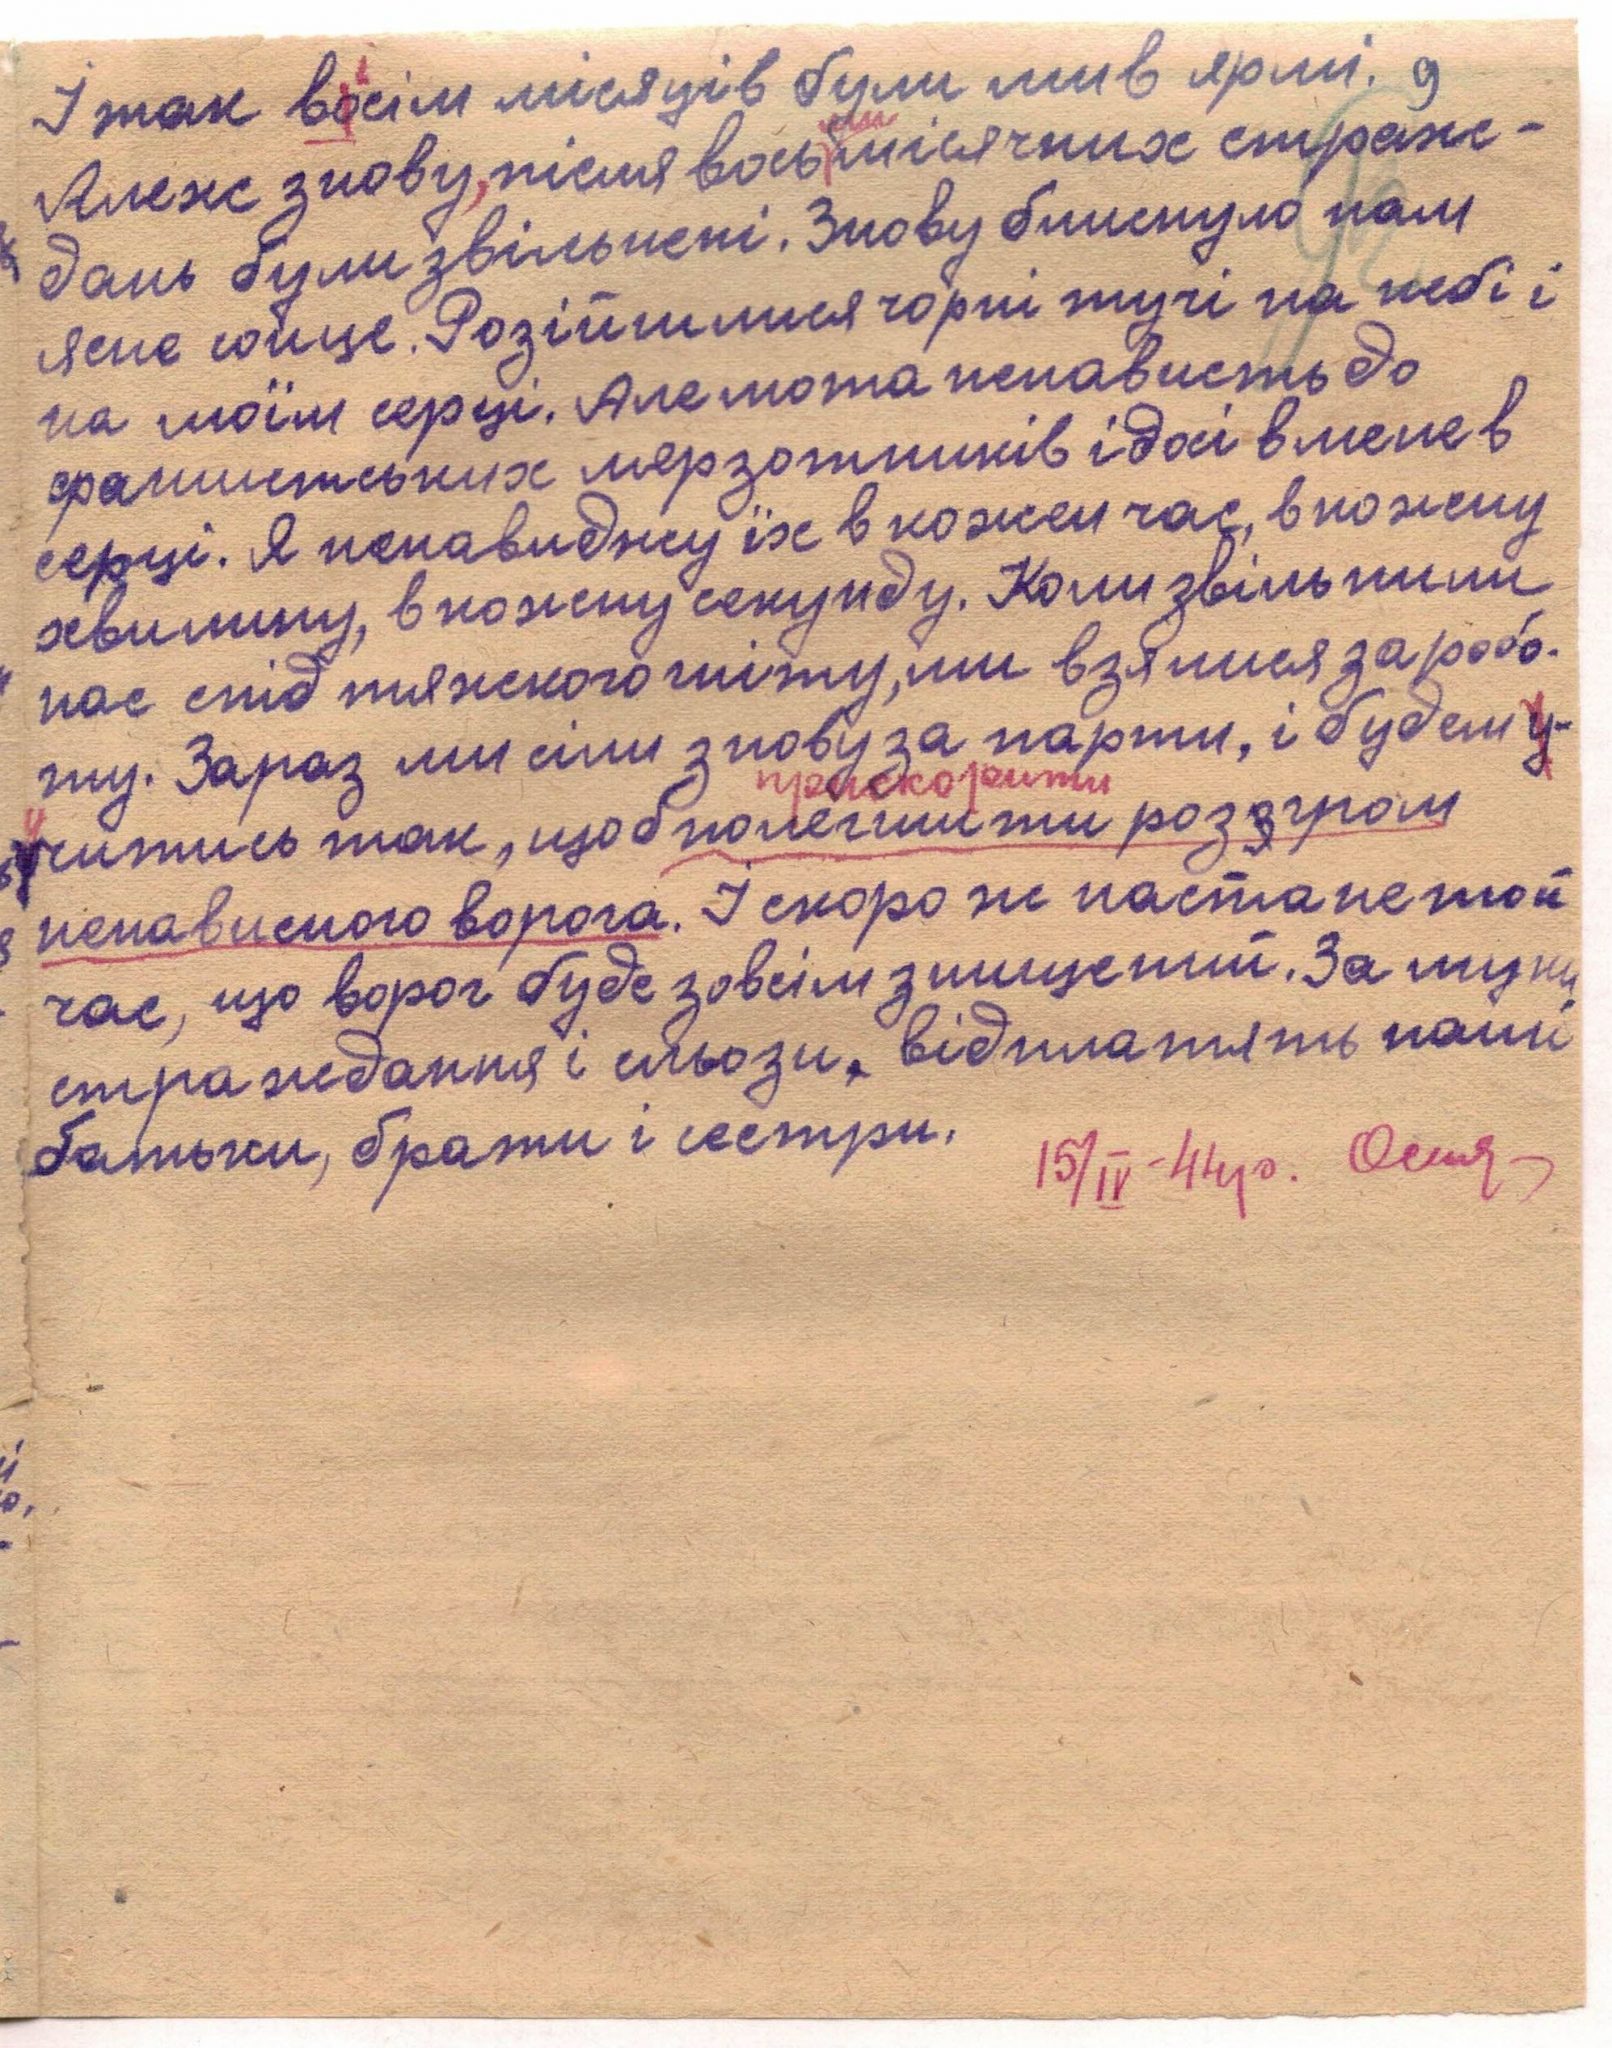 І так восім місяців були ми в ярмі. 9
Але ж знову, після восьмимісячних страж-
дань були звільнені. Знову блиснуло нам
ясне сонце. Розійшлися чорні тучі на небі і
на моїм серці. Але мота ненависть до
фашистських мерзотників і досі в мене в
серці. Я ненавиджу їх в кожен час, в кожну
хвилину, в кожну секунду. Коли звільнили
нас спід тяжкого гніту, ми взялися за робо-
ту. Зараз ми сіли знову за парти, і будем у-
прискорити
читись так, щоб полегшити розгром
ненависного ворога. І скоро ж настане той
час, що ворог буде зовсім знищений. За муки
страждання і сльози, відплатять наші
батьки, брати і сестри.
15/IV-44 р.